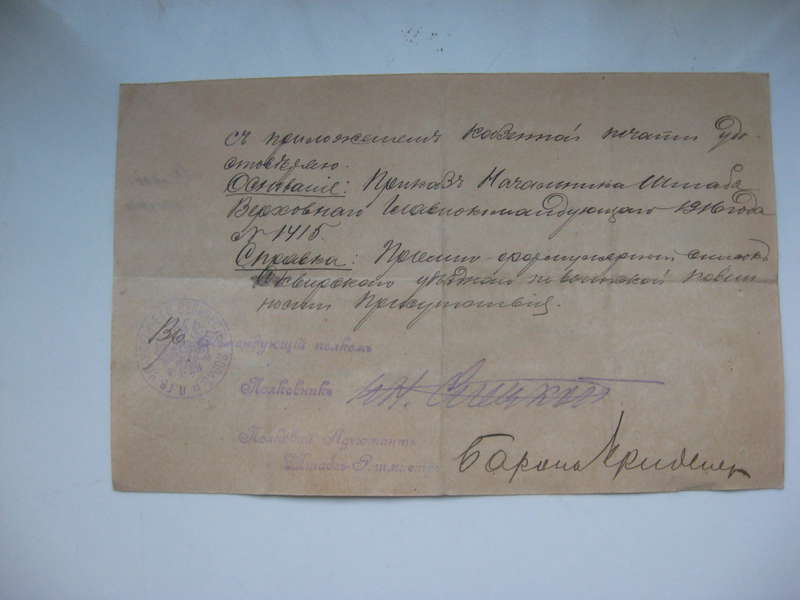 съ приложеніемъ казенной печати удо-
стовѣряю.
Основаніе: Приказъ Начальника Штаба
Верховнаго Главнокомандующаго 1916 года
№ 1415.
Справка: Пріемно-формулярный списокъ
Сквирского уѣзднаго по воинской повин-
ности Присутствія.
Врб. Командующій полкомъ
Полковникъ
Полковой Адъютантъ
Штабсъ-Ротмистръ Баронъ